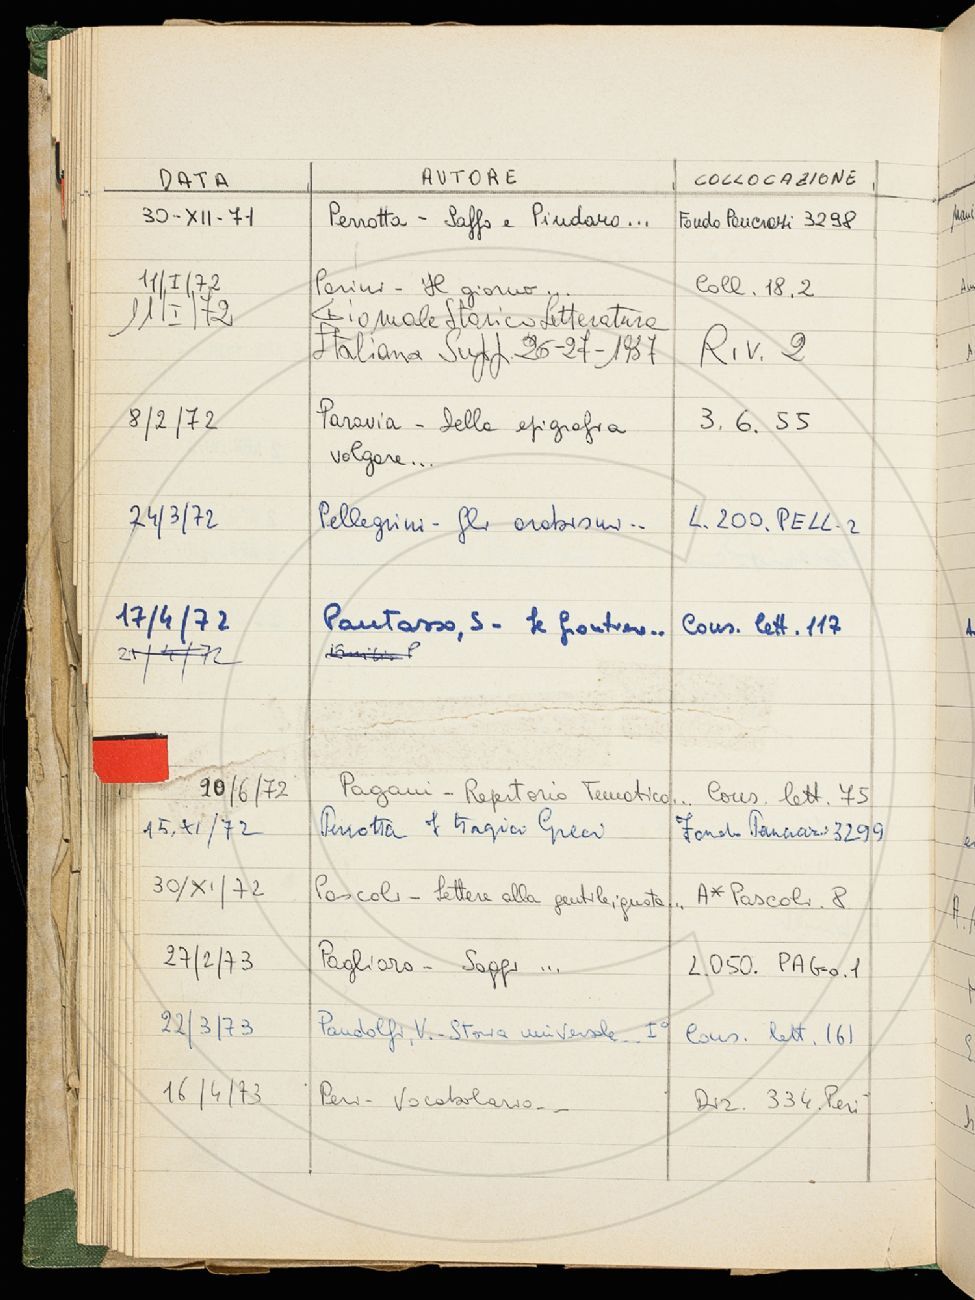 DATA AUTORE COLLOCAZIONE
30-XII-71 Perrotta - Saffo e Pindaro... Fondo Pancrazi 3298
11/I/72 Parini - Il giorno... Coll. 18.2
11/I/72 Giornale Storico Letteratura
Italiana Suppl. 26-27-1937 Riv. 2
8/2/72 Paravia - Della epigrafia 3. 6. 55
volgare...
24/3/72 Pellegrini - Gli arabismi... L. 200. PELL. 2
17/4/72 Pautasso, S - Le frontiere.. Cons. lett. 117
/4/72
20/6/72 Pagani - Repertorio Tematico... Cons. lett. 75
15.XI/72 Perrotta I tragici Greci Fondo Pancrazi 3299
30/XI/72 Pascoli - Lettere alla gentile ignota... A* Pascoli. 8
27/2/73 Pagliaro - Saggi ... L.050. PAG.1
22/3/73 Pandolfi, V. - Storia universale... I° Cons. lett. 161
16/4/73 Peri - Vocabolario... Diz. 334. Peri